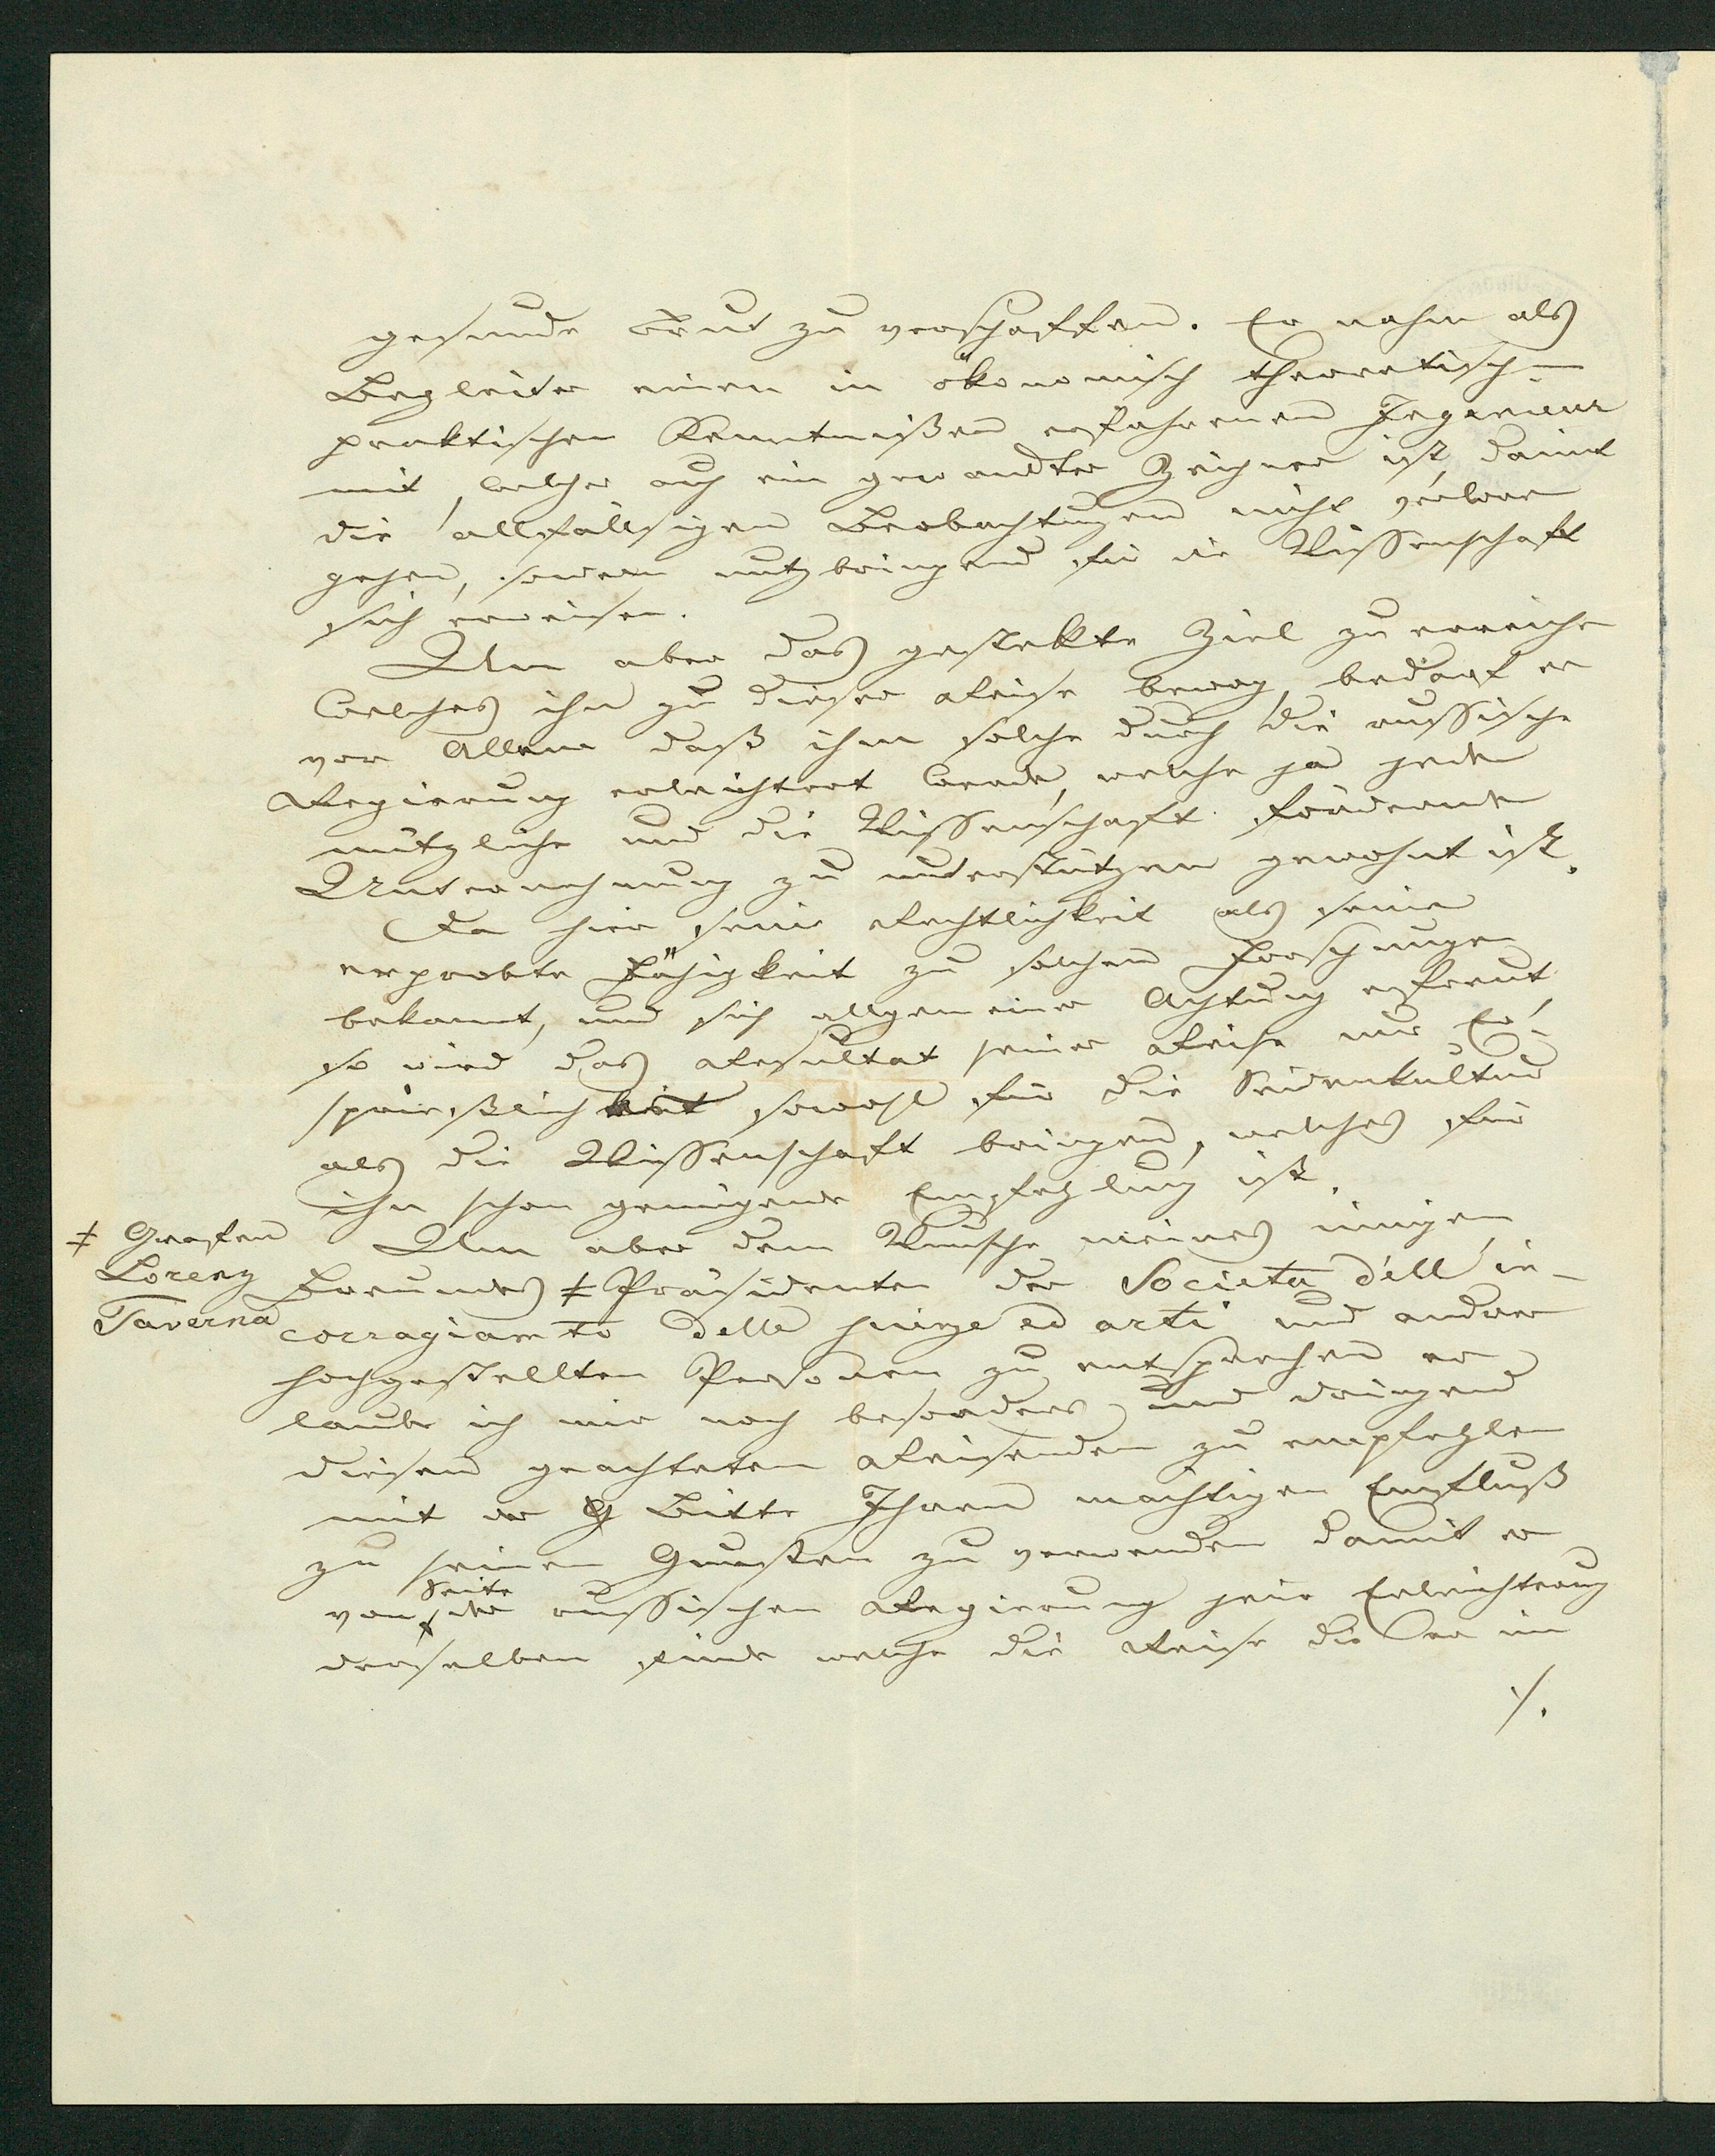 gesunde Brut zu verschaffen. Er nahm als
Begleiter einen in ökonomisch theoretisch-
praktischen Kenntnißen erfahrenen Ingenieur
mit, welcher auch ein gewandter Zeichner ist, damit
die allfällsigen Beobachtungen nicht verloren
gehen, sondern nutzbringend für die Wissenschaft
sich erweisen.
Um aber das gestekte Ziel zu erreichen
welches ihn zu dieser Reise bewog, bedarf er
vor Allem daß ihm solche durch die russische
Regierung erleichtert werde, welche ja jede
nützliche und die Wissenschaft fördernde
Unternehmung zu unterstützen gewohnt ist.
Da hier seine Rechtlichkeit als seine
erprobte Fähigkeit zu solchen Forschungen
bekannt, und sich allgemeiner Achtung erfreut,
so wird das Resultat seiner Reise nur Er-
sprießlichkeit sowohl für die Seidenkultur
als die Wissenschaft bringen, welches für
ihn schon genügende Empfehlung ist.
Um aber dem Wunsche meines innigen
Freundes ‡ Präsidenten der Societa dell'in-
‡ Grafen
Lorenz
Taverna
corragiamto delle scienze ed arti und andrer
hochgestellten Personen zu entsprechen er
laube ich mir noch besonders und dringend
diesen geachteten Reisenden zu empfehlen
mit der Bitte Ihren mächtigen Einfluß
zu seinen Gunsten zu verwenden damit er
von Seite der russischen Regierung jene Erleichterung
derselben finde welche die Reise die er im
./.